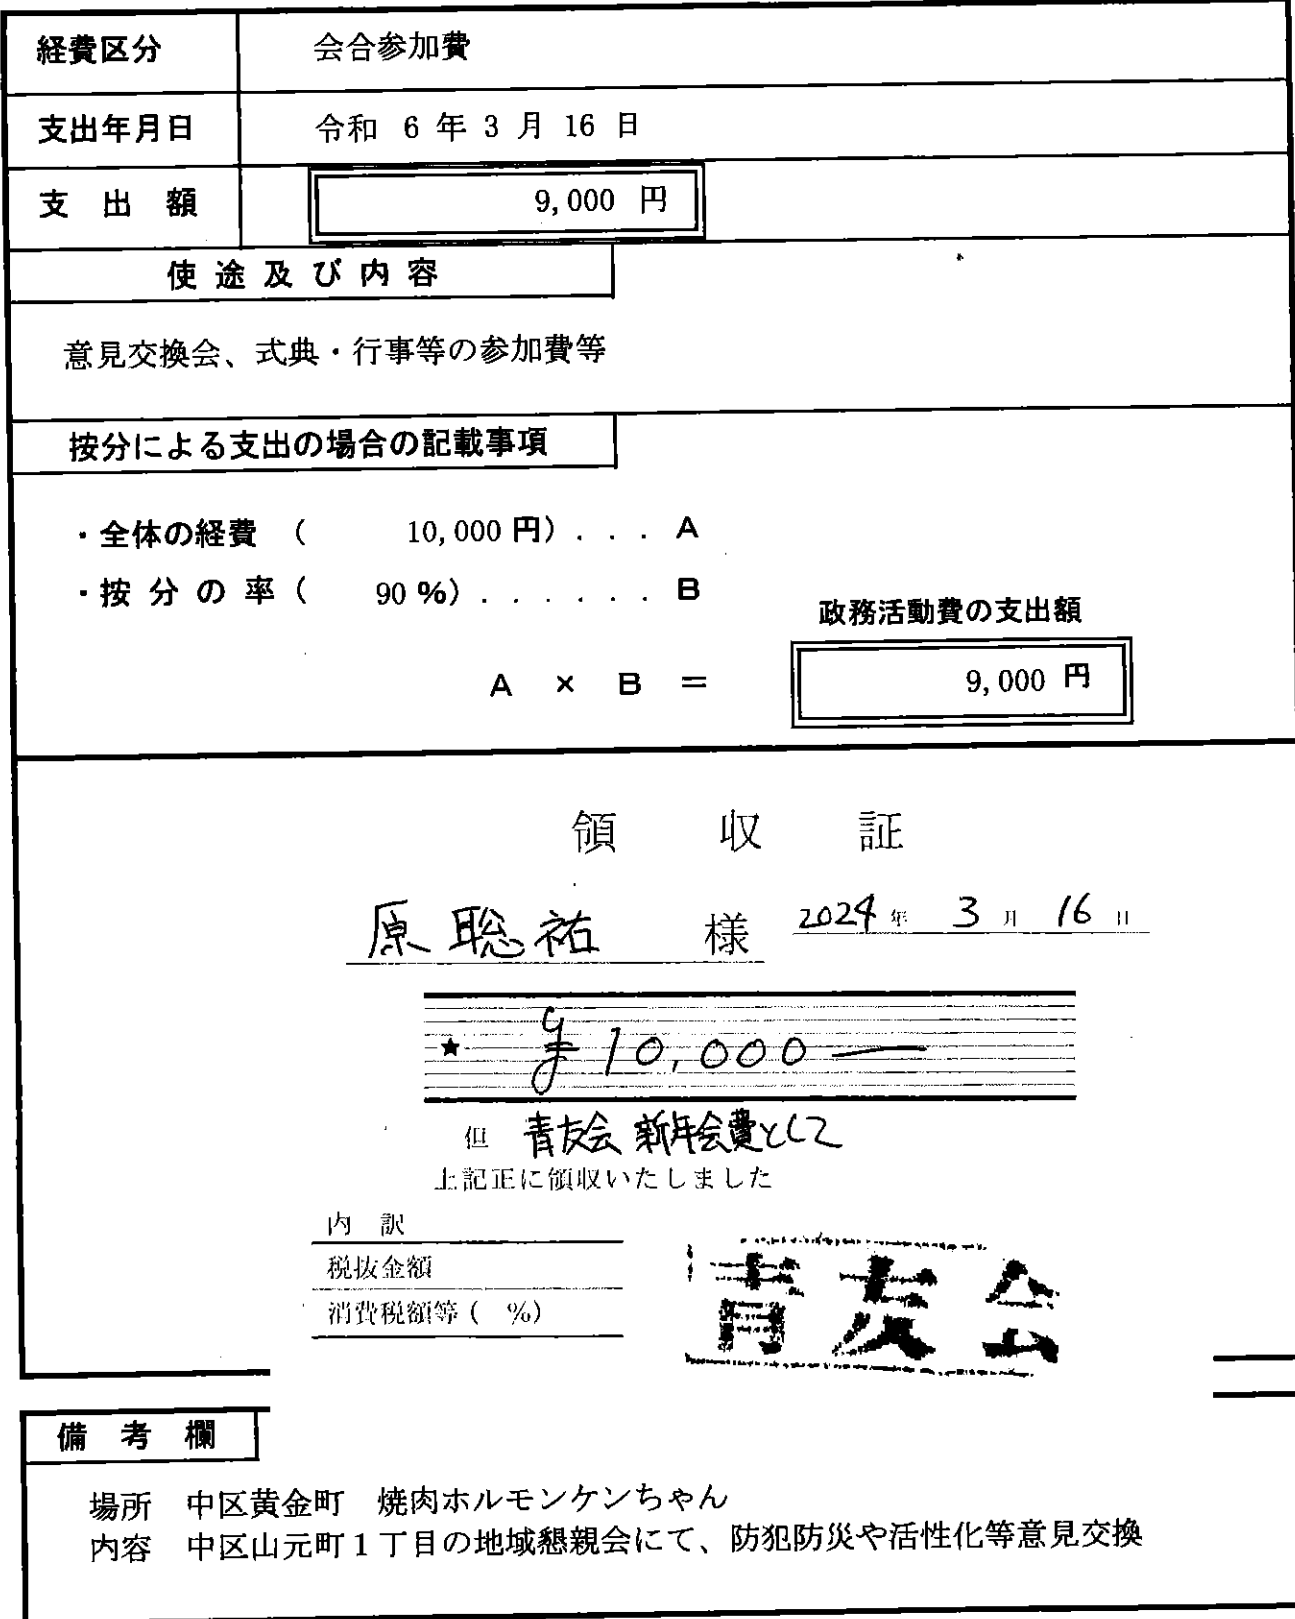 経費区分 会合参加費
支出年月日 令和 6 年 3 月 16 日
支出額 9,000 円
使途及び内容
意見交換会、式典・行事等の参加費等
按分による支出の場合の記載事項
・全体の経費 ( 10,000 円) . . . A
・按分の率 ( 90 %) . . . . . . B
政務活動費の支出額
A × B = 9,000 円
領収証
原聡祐 様 2024 年 3 月 16 日
★ ¥10,000―
但 青友会 新年会費として
上記正に領収いたしました
内訳
税抜金額
消費税額等 ( %)
青友会
備考欄
場所 中区黄金町 焼肉ホルモンケンちゃん
内容 中区山元町1丁目の地域懇親会にて、防犯防災や活性化等意見交換